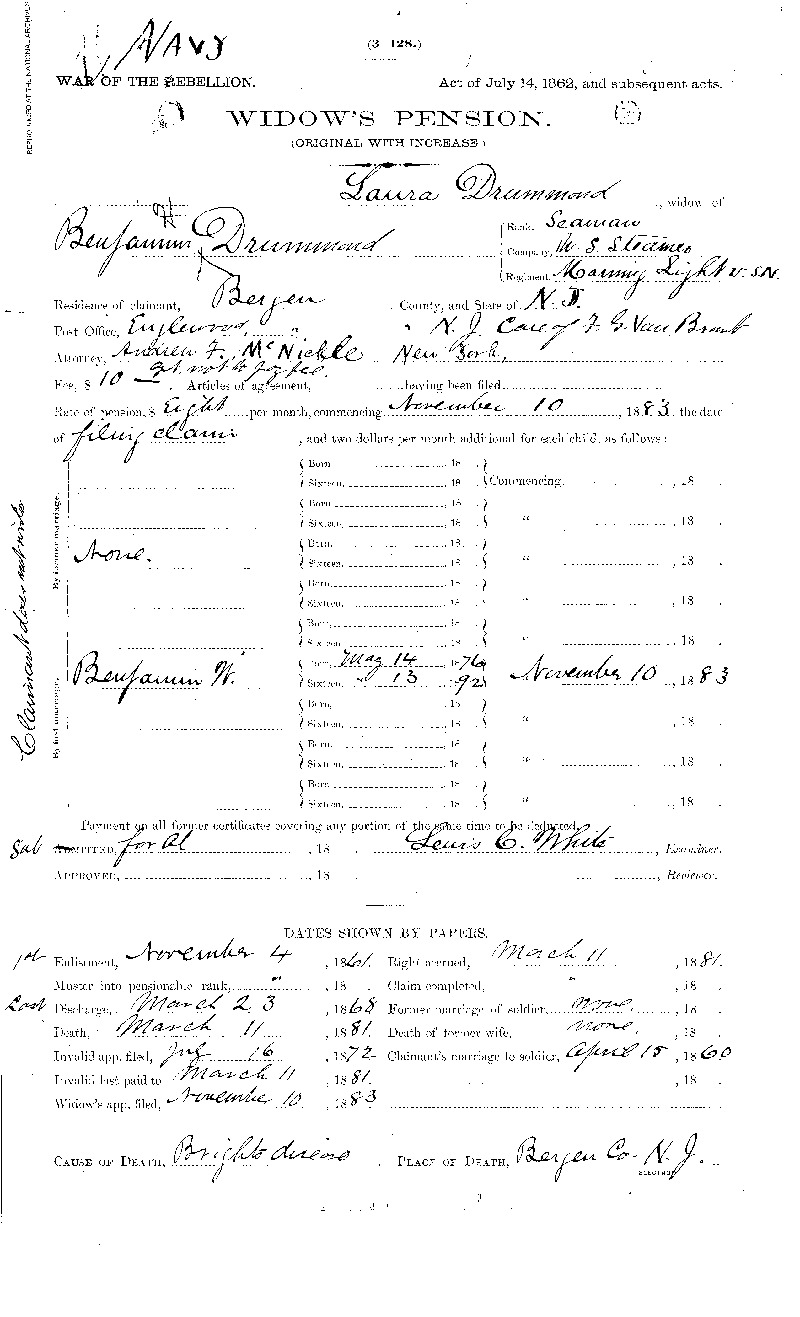 REPRODUCED AT THE NATIONAL ARCHIVES
NAVY
(3—128.)
WAR OF THE REBELLION. Act of July 14, 1862, and subsequent acts.
WIDOW'S PENSION.
(ORIGINAL WITH INCREASE)
Laura Drummond, widow of
Benjamin H Drummond
Rank, Seaman
Company, U S Steamer
Regiment, Morning Light U.S.N.
Residence of claimant, Bergen County, and State of N. J.
Post Office, Englewood, " " N. J. Care of F. G. Van Brunt
Attorney, Andrew F. McNickle New York,
Fee, $ 10 — not to Articles of agreement, having been filed
Rate of pension, $ Eight per month, commencing November 10, 1883, the date
of filing claim, and two dollars per month additional for each child, as follows:
Claimant does not write
By former marriage.
Born 18
Sixteen, 18 Commencing, 18
Born 18
Sixteen, 18 " , 18
None. Born, 18
Sixteen, 18 " , 18
Born, 18
Sixteen, 18 " , 18
Born, 18
Sixteen 18 " , 18
By last marriage.
Benjamin W. Born, May 14 1876
Sixteen " 13 92 November 10, 1883
Born, 18
Sixteen 18 " , 18
Born, 18
Sixteen, 18 " , 18
Born 18
Sixteen, 18 " , 18
Payment on all former certificates covering any portion of the same time to be deducted.
Sub ADMITTED, for Al , 18 Lewis C. White, Examiner.
APPROVED, , 18 , Reviewer.
DATES SHOWN BY PAPERS.
1st Enlistment, November 4, 1861. Right accrued, March 11, 1881.
Muster into pensionable rank, " , 18 Claim completed, " , 18
Last Discharge, March 23, 1868 Former marriage of soldier, none, 18
Death, March 11, 1881. Death of former wife, none, 18
Invalid app. filed, July 16, 1872 Claimant's marriage to soldier, April 15, 1860
Invalid last paid to March 11, 1881. , 18
Widow's app. filed, November 10, 1883
CAUSE OF DEATH, Brights disease. PLACE OF DEATH, Bergen Co. N. J.